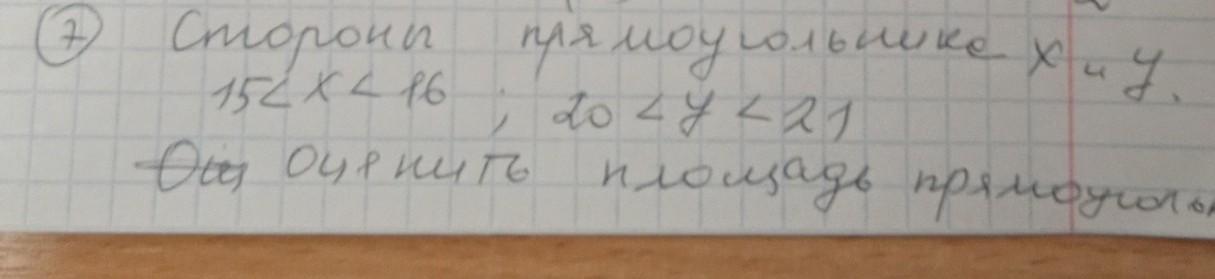 ⑦ Стороны прямоугольнике x и y.
15 < x < 16 ; 20 < y < 21
Оценить площадь прямоуголь